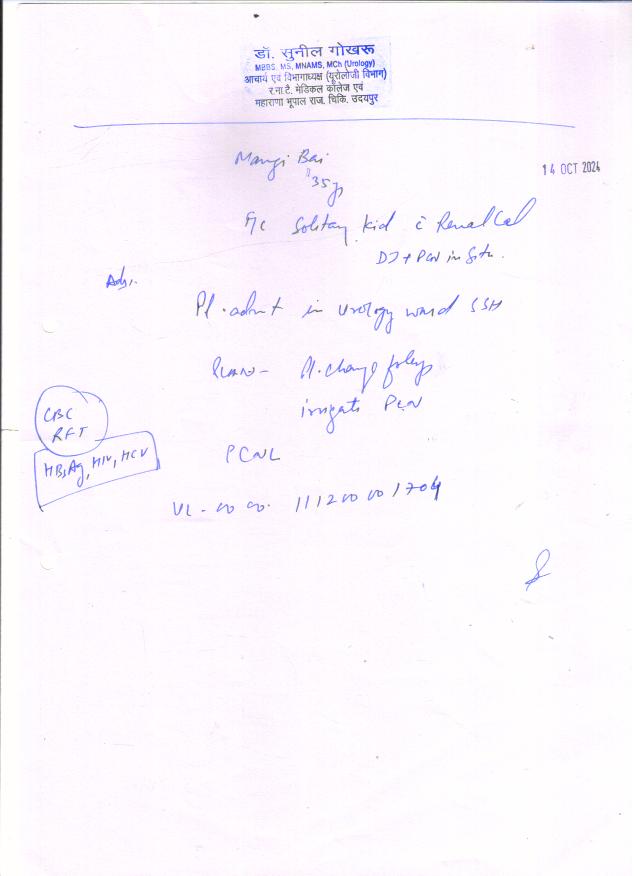 डॉ. सुनील गोखरू
MBBS, MS, MNAMS, MCh (Urology)
आचार्य एवं विभागाध्यक्ष (यूरोलोजी विभाग)
र.ना.टै. मेडिकल कॉलेज एवं
महाराणा भूपाल राज. चिकि. उदयपुर
14 OCT 2024
Mangi Bai
35
Solitary Kid c̄ Renal Cal
DJ + PCN in situ.
Adv.
Pl. admit in urology ward SSH
Pl. change foleys
irrigate PCN
CBC
RFT
HBsAg, HIV, HCV
PCNL